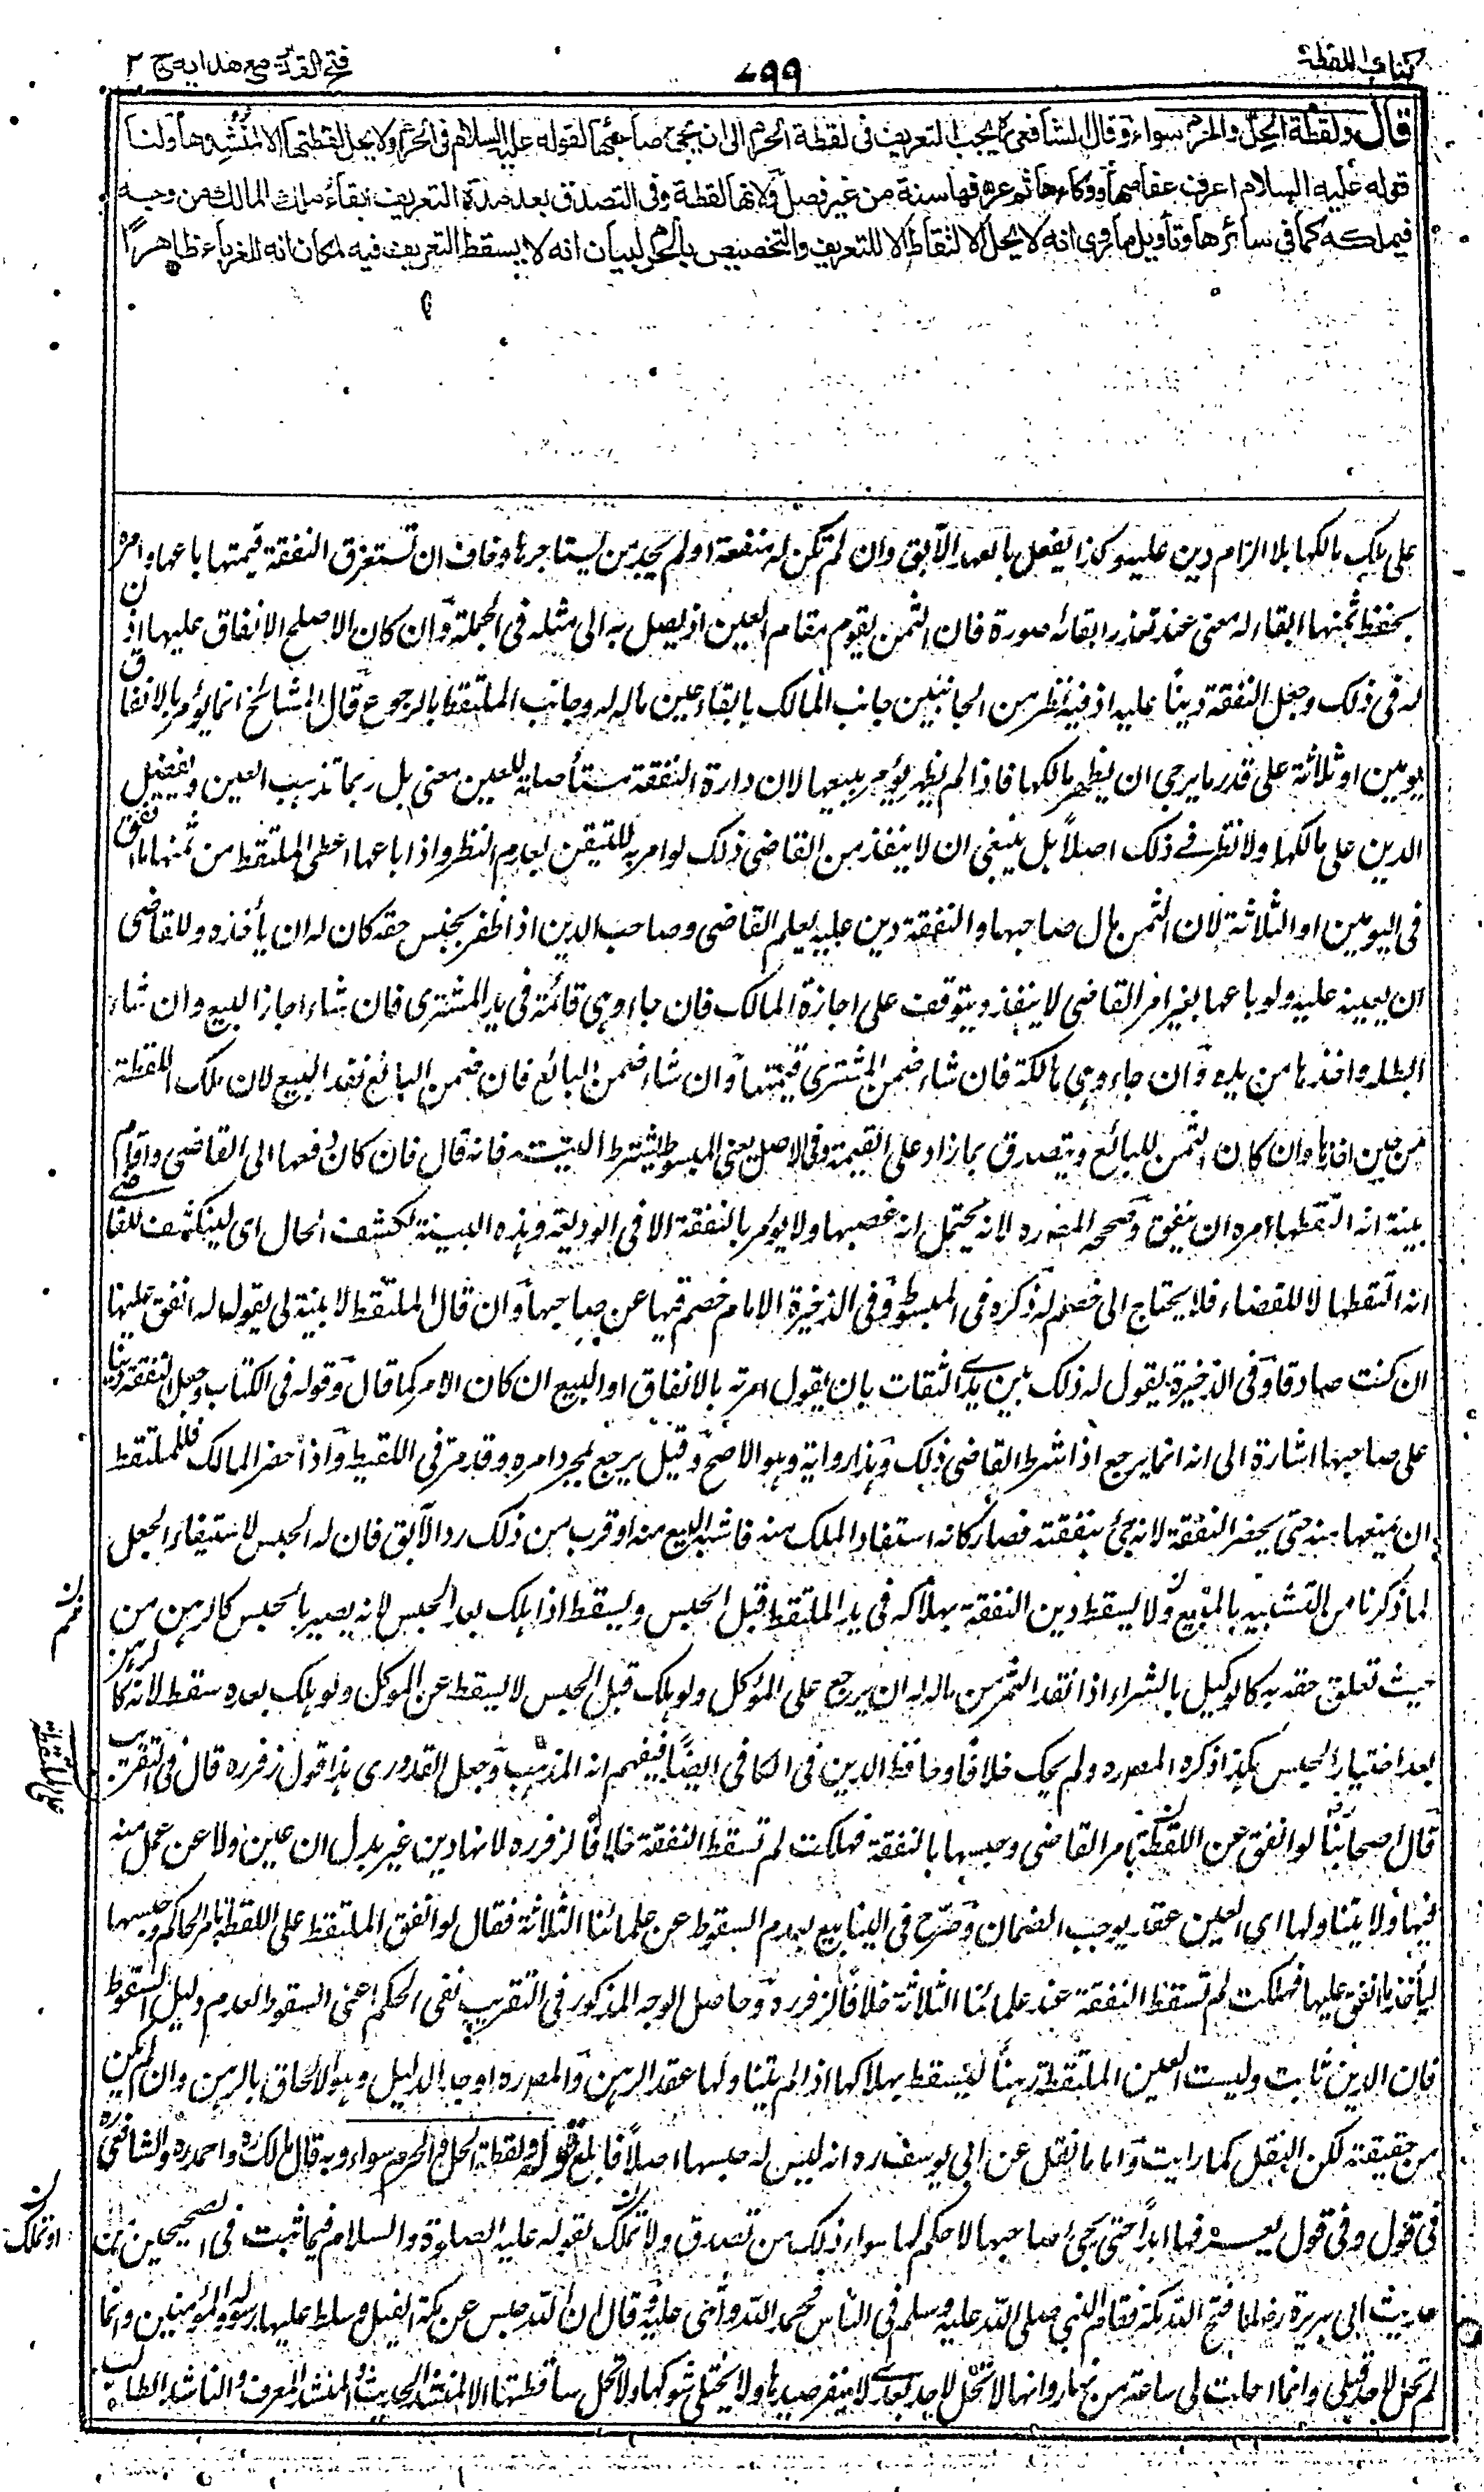 كتاب اللقطة
٧٩٩
فتح القدير مع هدايه ج ٢
قال ولقطة الحل والحرم سواء وقال الشافعى يجب التعريف فى لقطة الحرم الى ان يجئ صاحبها لقوله عليه السلام فى الحرم ولا يحل لقطتها الا لمنشدها ولنا
قوله عليه السلام اعرف عفاصها ووكاءها ثم عرفها سنة من غير فصل ولانها لقطة وفى التصدق بعد مدة التعريف ابقاء ملك المالك من وجه
فيملكه كما فى سائرها وتأويل ما روى انه لا يحل الالتقاط الا للتعريف والتخصيص بالحرم لبيان انه لا يسقط التعريف فيه لمكان انه للغرباء ظاهرا
على ملك مالكها بلا الزام دين عليه وكذا يفعل بالعبد الآبق وان لم تكن له منفعة او لم يجد من يستاجرها وخاف ان تستغرق النفقة قيمتها باعها وامره
بحفظ ثمنها ابقاء له معنى عند تعذر ابقائه صورة فان الثمن يقوم مقام العين اذ يصل به الى مثله فى الجملة وان كان الاصلح الانفاق عليها اذن
له فى ذلك وجعل النفقة دينا عليه اذ فيه نظر من الجانبين جانب المالك بابقاء عين ماله له وجانب الملتقط بالرجوع قال المشائخ انما يؤمر بالانفاق
يومين او ثلاثة على قدر ما يرجى ان يظهر مالكها فاذا لم يظهر يؤمر ببيعها لان دارة النفقة مستأصلة للعين معنى بل ربما تذهب العين ويفضل
الدين على مالكها ولا نظر فے ذلك اصلا بل ينبغى ان لا ينفذ من القاضى ذلك لو امر به للتيقن بعدم النظر واذا باعها اعطى الملتقط من ثمنها ما انفق
فى اليومين او الثلاثة لان الثمن مال صاحبها والنفقة دين عليه بعلم القاضى وصاحب الدين اذا ظفر بجنس حقه كان له ان يأخذه وللقاضى
ان يعينه عليه ولو باعها بغير امر القاضى لا ينفذ ويتوقف على اجازة المالك فان جاء وهى قائمة فى يد المشترى فان شاء اجاز البيع وان شاء
ابطله واخذها من يده وان جاء وهى هالكة فان شاء ضمن المشترى قيمتها وان شاء ضمن البائع فان ضمن البائع نفذ البيع لان ملك اللقطة
من حين اخذها وان كان الثمن للبائع ويتصدق بما زاد على القيمة وفى الاصل يعنى المبسوط يشترط البينة فانه قال فان كان دفعها الى القاضى واقام
بينة انه التقطها امره ان ينفق وصححه المص ره لانه يحتمل انه غصبها ولا يؤمر بالنفقة الا فى الوديعة وهذه البينة لكشف الحال اى لينكشف للقاضے
انه التقطها لا للقضاء فلا يحتاج الى خصم له ذكره فى المبسوط وفى الذخيرة الامام خصم فيها عن صاحبها وان قال الملتقط لا بينة لى يقول له انفق عليها
ان كنت صادقا وفى الذخيرة يقول له ذلك بين يدے الثقات بان يقول امرته بالانفاق او البيع ان كان الامر كما قال وقوله فى الكتاب وجعل النفقة دينا
على صاحبها اشارة الى انه انما يرجع اذا شرط القاضى ذلك وهذا رواية وهو الاصح وقيل يرجع بمجرد امره وقد مر فى اللقيط واذا حضر المالك فللملتقط
ان يمنعها منه حتى يحضر النفقة لانه حى بنفقته فصار كانه استفاد الملك منه فاشبه المبيع منه اوقرب من ذلك رد الآبق فان له الحبس لاستيفاء الجعل
لما ذكرنا من التشبيه بالمبيع ولا يسقط دين النفقة بهلاكه فى يد الملتقط قبل الحبس ويسقط اذا هلك بعد الحبس لانه يصير بالحبس كالرهن من
حيث تعلق حقه به كالوكيل بالشراء اذا نقد الثمن من ماله له ان يرجع على المؤكل ولو هلك قبل الحبس لا يسقط عن الموكل ولو هلك بعده سقط لانه كالرهن
بعد اختيار الحبس هكذا ذكره المص ره ولم يحك خلافا وحافظ الدين فى الكافى ايضا فيفهم انه المذهب وجعل القدورى هذا قول زفر ره قال فى التقريب
قال اصحابنا لو انفق عن اللقطة بامر القاضى وحبسها بالنفقة فهلكت لم تسقط النفقة خلافا لزفر ره لانها دين غير بدل ان عين ولا عن عمل منه
فيها ولا يتناولها اى العين عقد يوجب الضمان وصرح فى الينابيع بعدم السقوط عن علمائنا الثلاثة فقال لو انفق الملتقط على اللقطة بامر الحاكم وحبسها
ليأخذ ما انفق عليها فهلكت لم تسقط النفقة عند علمائنا الثلاثة خلافا لزفر ره وحاصل الوجه المذكور فى التقريب نفى الحكم اعنى السقوط لعدم دليل السقوط
فان الدين ثابت وليست العين الملتقطة رهنا ليسقط بهلاكها اذ لم يتناولها عقد الرهن والمص ره اوجد الدليل وهو الالحاق بالرهن وان لم يكن
من حقيقته لكن النقل كما رايت واما ما نقل عن ابى يوسف ره انه ليس له حبسها اصلا فابلغ قوله ولقطة الحل والحرم سواء وبه قال مالك ره واحمد ره والشافعى ره
فى قول وفى قول يعرفها ابدا حتى يجئ صاحبها لا حكم لها سواء ذلك من تصدق ولا تملك لقوله عليه الصلوة والسلام فيما ثبت فى الصحيحين من
حديث ابى هريرة رض لما فتح الله مكة فقام النبى صلى الله عليه وسلم فى الناس فحمد الله واثنى عليه وقال ان الله حبس عن مكة الفيل وسلط عليها رسوله والمؤمنين وانها
لم تحل لاحد قبلى وانما احلت لى ساعة من نهار وانها لا تحل لاحد بعدے لا ينفر صيدها ولا يختلى شوكها ولا تحل ساقطتها الا لمنشد الحديث والمنشد المعرف والناشد الطالب
او تملك